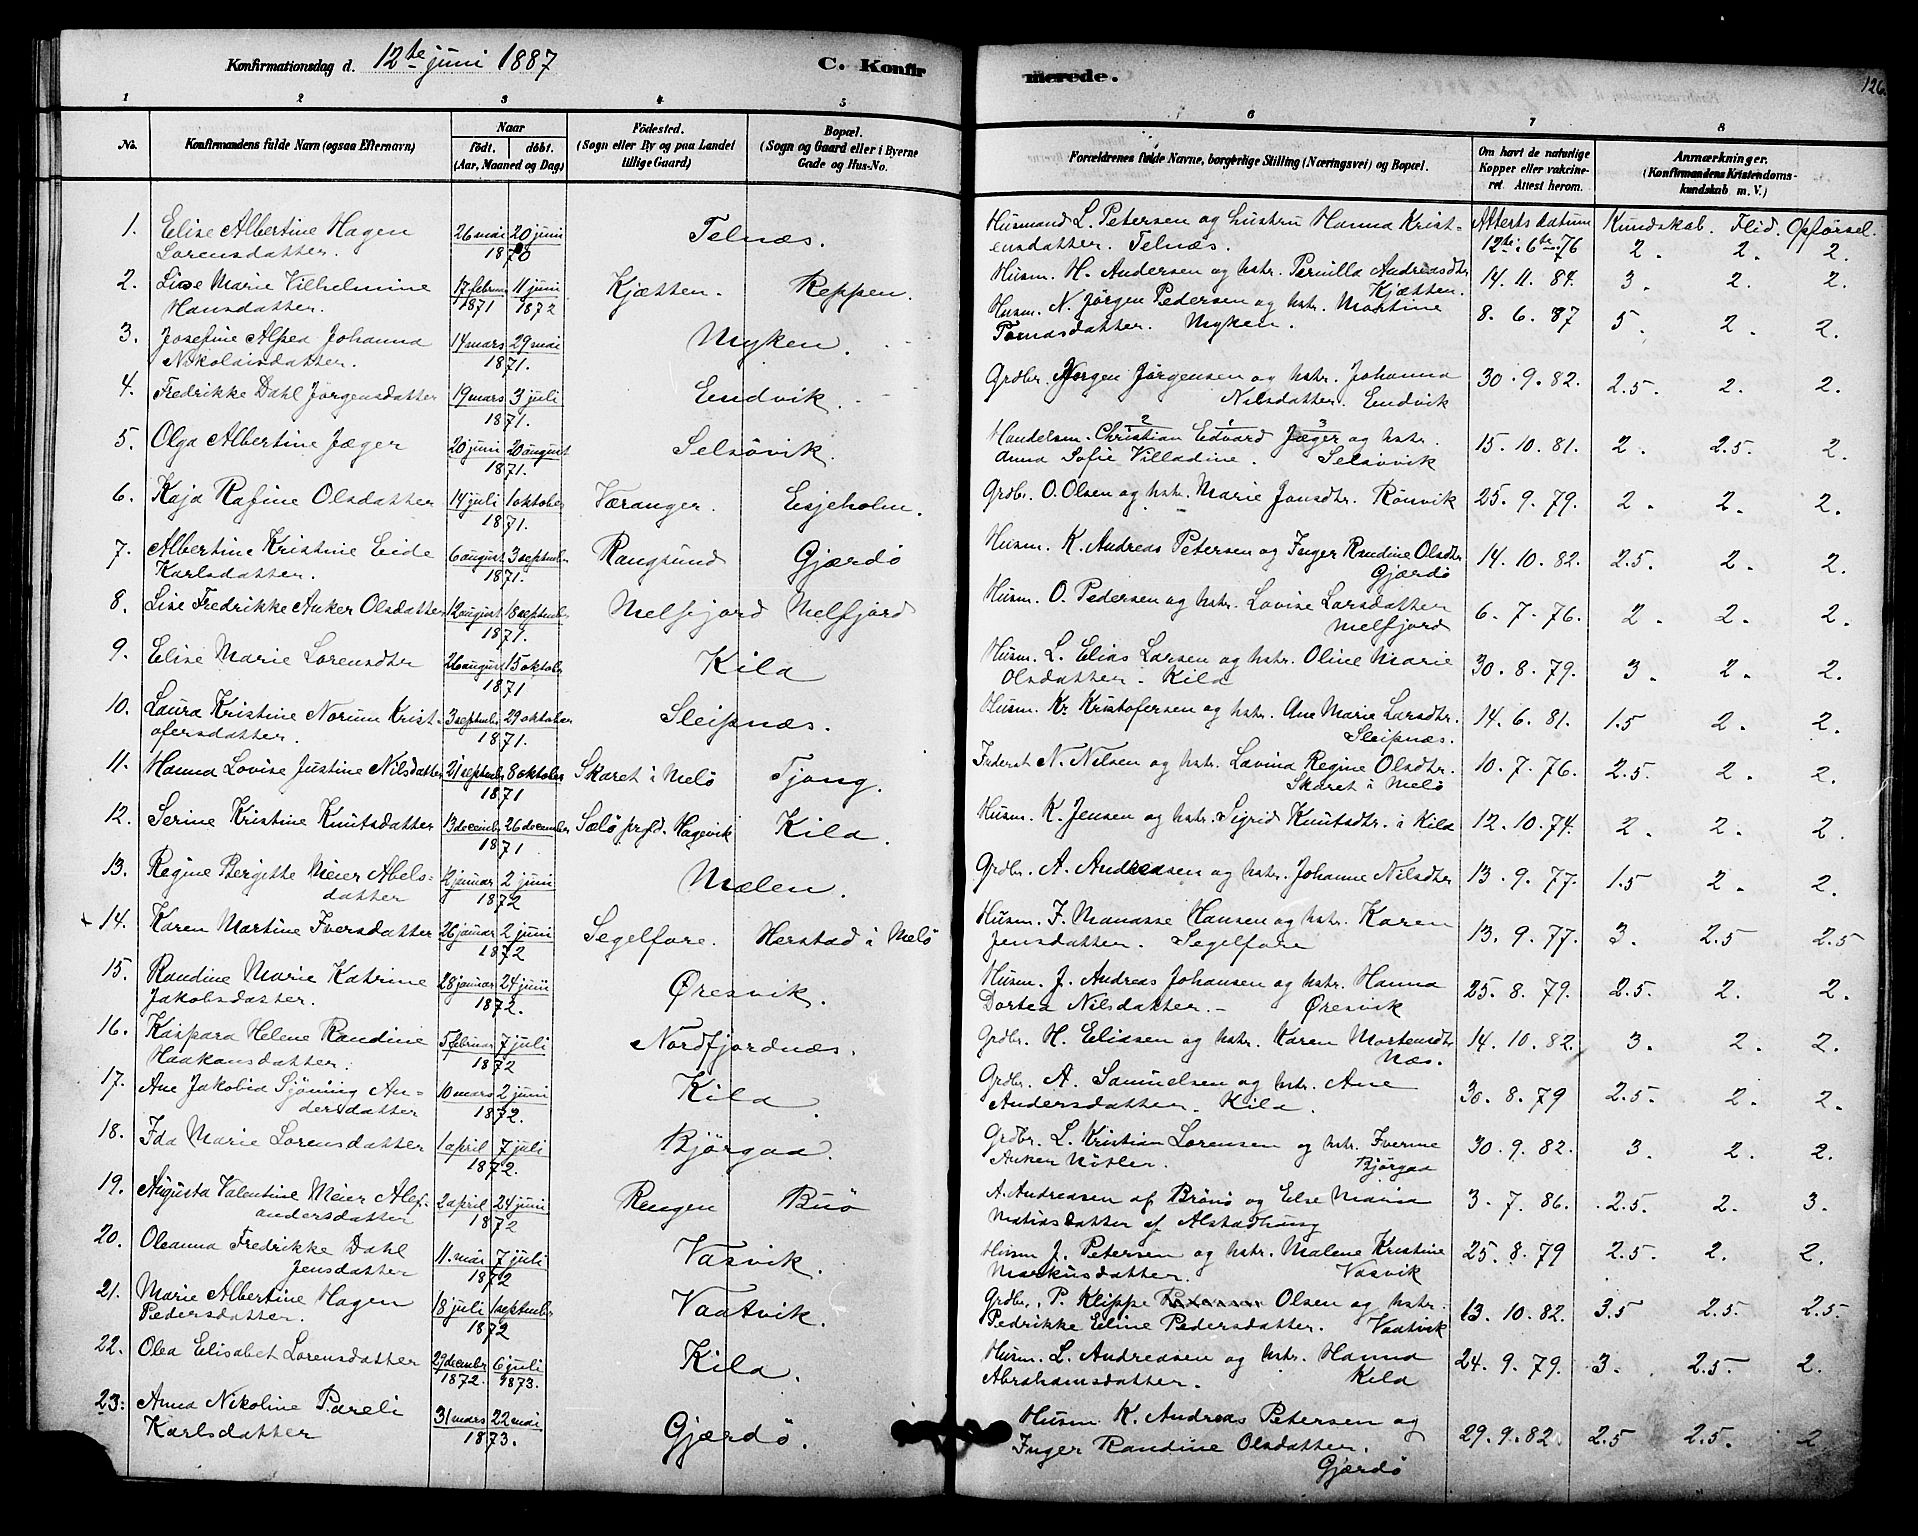 Konfirmationsdag d. 12te juni 1887 C. Konfirmerede. 126.
1 2 3 4 5 6 7 8
No. Konfirmandens fulde Navn (ogsaa Efternavn) Naar født. døbt. (Aar, Maaned og Dag) Födested. (Sogn eller By og paa Landet tillige Gaard) Bopæl. (Sogn og Gaard eller i Byerne Gade og Hus-No. Forældrenes fulde Navne, borgerlige Stilling (Næringsvei) og Bopæl. Om havt de naturlige Kopper eller vakcineret. Attest herom. Anmærkninger. (Konfirmandens Kristendomskundskab m. V.)
Attests datum Kundskab. Flid. Opførsel.
1. Elise Albertine Hagen Lorensdatter. 26 mai 20 juni 1870 Telnæs. Husmand L. Petersen og hustru Hanna Kristensdatter. Telnæs. 12te. 6te. 76 2. 2. 2.
2. Lise Marie Vilhelmine Hansdatter. 17 februar 1871 11 juni 1872 Kjætten. Reppen. Husm. H. Andersen og hstr. Pernilla Andreasdtr Kjætten. 14. 11. 84. 3. 2. 2.
3. Josefine Alfea Johanna Nikolaisdatter. 14 mars 29 mai 1871. Myken. Husm. N. Jørgen Pedersen og hstr. Martine Tomasdatter. Myken. 8. 6. 87 5. 2. 2.
4. Fredrikke Dahl Jørgensdatter 19 mars 3 juli 1871. Endvik. Grdbr. Jørgen Jørgensen og hstr. Johanna Nilsdatter. Endvik 30. 9. 82. 2.5. 2. 2.
5. Olga Albertine Jæger 20 juni 20 august 1871. Selsøvik. Handelsm. Christian Edvard Jæger og hstr. Anna Sofie Villadine. Selsøvik 15. 10. 81. 2. 2.5. 2.
6. Kaja Rafine Olsdatter 14 juli 1 oktober 1871. Væranger. Esjeholm. Grdbr. O. Olsen og hstr. Marie Jonsdtr. Rönvik 25. 9. 79. 2. 2. 2.
7. Albertine Kristine Eide Karlsdatter. 6 august 3 september 1871. Rangsund Gjærdö Husm. K. Andreas Petersen og Inger Randine Olsdtr Gjærdö 14. 10. 82. 2.5. 2. 2.
8. Lise Fredrikke Anker Olsdatter 12 august 18 september 1871. Melfjord Melfjord Husm. O. Pedersen og hstr. Lovise Larsdatter Melfjord 6. 7. 76. 2. 2. 2.
9. Elise Marie Lorensdtr 26 august 15 oktober 1871 Kila Husm. L. Elias Larsen og hstr. Oline Marie Olsdatter. Kila 30. 8. 79. 3. 2. 2.
10. Laura Kristine Norum Kristofersdatter. 3 september 29 oktober 1871. Sleipnæs. Husm. Kr. Kristofersen og hstr. Ane Marie Larsdtr. Sleipnæs. 14. 6. 81. 1.5 2. 2.
11. Hanna Lovise Justine Nilsdatter 21 september 8 oktober 1871 Skaret i Melö Tjong. Inderst N. Nilsen og hstr. Lavina Regine Olsdtr. Skaret i Melö 10. 7. 76. 2.5. 2. 2.
12. Serine Kristine Knutsdatter 13 december 26 december 1871 Sælö prgld. Hagevik Kila. Husm. K. Jensen og hstr. Sigrid Knutsdtr. i Kila 12. 10. 74. 2. 2. 2.
13. Regine Bergitte Meier Abelsdatter 12 januar 2 juni 1872 Mælen. Grdbr. A. Andreasen og hstr. Johanne Nilsdtr 13. 9. 77. 1.5 2. 2.
14. Karen Martine Iversdatter 26 januar 2 juni 1872 Segelfore. Herstad i Melö Husm. I. Manasse Hansen og hstr. Karen Jensdatter. Segelfore 13. 9. 77. 3. 2.5 2.5
15. Randine Marie Katrine Jakobsdatter. 28 januar 24 juni 1872. Øresvik. Husm. J. Andreas Johansen og hstr. Hanna Dortea Nilsdatter. - Øresvik 25. 8. 79. 2.5. 2. 2.
16. Kaspara Helene Randine Haakansdatter. 5 februar 7 juli 1872 Nordfjordnæs. Grdbr. H. Eliasen og hstr. Karen Mortensdtr Næs. 14. 10. 82. 3. 2. 2.
17. Ane Jakobia Sjöning Andersdatter 10 mars 2 juni 1872. Kila. Grdbr. A. Samuelsen og hstr. Ane Andersdatter. Kila. 30. 8. 79 2.5. 2. 2.
18. Ida Marie Lorensdatter 1 april 7 juli 1872. Bjørgaa. Grdbr. L. Kristian Lorensen og hstr. Iverine Anker Nösler. Bjørgaa 30. 9. 82. 3. 2. 2.
19. Augusta Valentine Meier Alexandersdatter 2 april 24 juni 1872 Rengen Buö A. Andreasen af Brönö og Else Maria Matiasdatter af Alstadhaug 3. 7. 86. 2.5. 2. 3.
20. Oleanna Fredrikke Dahl Jensdatter 11. mai 7 juli 1872 Vasvik. Husm J. Petersen og hstr. Malene Kristine Markusdatter. Vasvik 25. 8. 79 2.5. 2. 2.
21. Marie Albertine Hagen Pedersdatter. 18 juli 1 september 1872 Vaatvik. Grdbr. P. Klippe Olsen og hstr. Pedrikke Eline Pedersdatter. Vaatvik 13. 10. 82. 3.5 2.5. 2.5.
22. Olea Elisabet Lorensdatter 29 december 1872. 6 juli 1873. Kila. Husm. L. Andreasen og hstr. Hanna Abrahamsdatter. Kila 24. 9. 79. 3. 2.5. 2.
23. Anna Nikoline Pareli Karlsdatter 31 mars 22 mai 1873. Gjærdö. Husm K. Andreas Petersen og Inger Randine Olsdatter. Gjærdö 29. 9. 82. 2.5 2.5. 2